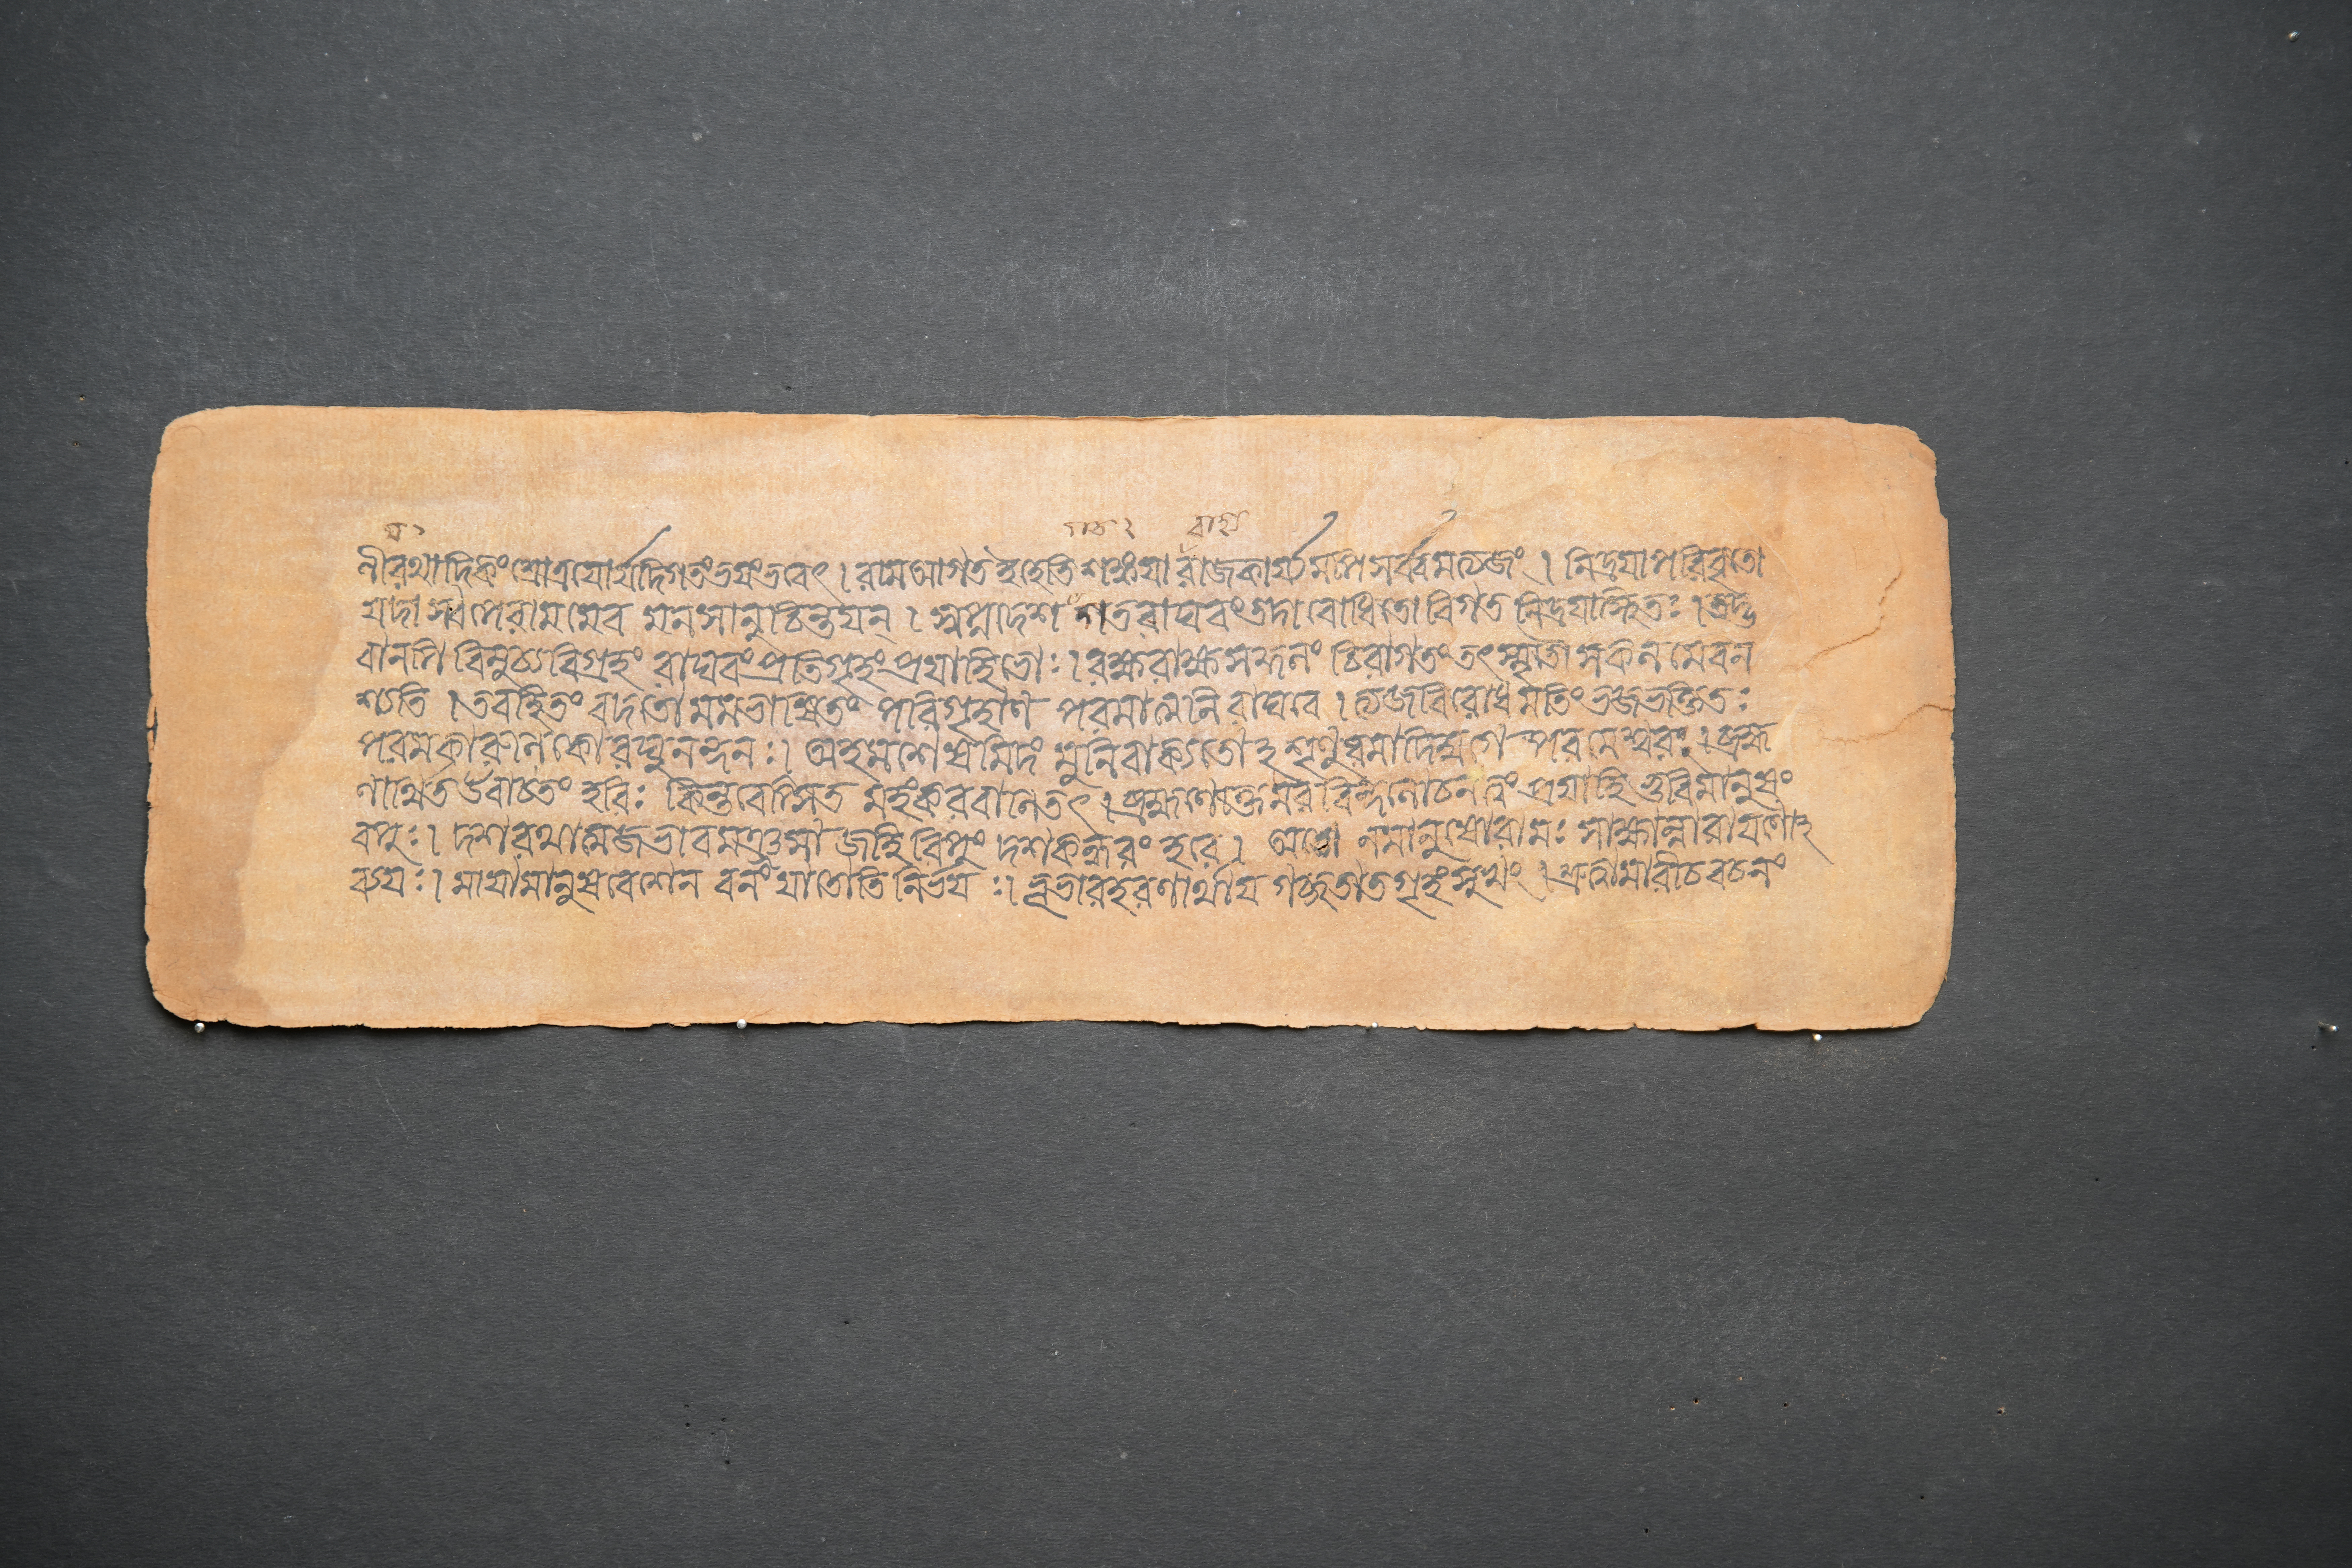 ণীরথাদিকং শ্রোত্রয়োর্যদিগতং ভয়ং ভবেৎ । রাম আগত ইহেতি শঙ্কয়া রাজকার্য্যমপি সর্ব্বমত্যজং । নিদ্রয়া পরিবৃতো
যদা স্বপে রামমেব মনসানুচিন্তয়ন্ । স্বপ্নদেশ গত রাঘবং তদা বোধিতো বিগত নিদ্রয়াস্থিতঃ । তদ্ভ
বানপি বিমুচ্য বিগ্রহং রাঘবং প্রতি গৃহং প্রয়াহি ভোঃ । রক্ষ রাক্ষস কুলং চিরাগতং তৎস্মৃতৌ সকলমেব ন
শ্যতি । তব হিতং বদতো মম ভাষিতং পরিগৃহাণ পরমাত্মনি রাঘবে । ত্যজ বিরোধমতিং ভজ ভক্তিতঃ
পরমকারুণিকো রঘুনন্দনঃ । অহমশেষমিদং মুনিবাক্যতোঽশৃণুবমাদিযুগে পরমেশ্বরঃ । ব্রহ্ম
ণার্থিত উবাচ তং হরিঃ কিন্তবেপ্সিত মহং করবাণি তৎ । ব্রহ্মণোক্তমরবিন্দলোচন ত্বং প্রয়াহি ভুবি মানুষং
বপুঃ । দশরথাত্মজভাবমঞ্জসা জহি রিপুং দশকন্ধরং হরে । অতো ন মানুষো রামঃ সাক্ষান্নারায়ণোঽ
ব্যয়ঃ । মায়ামানুষবেশেন বনং যাতোতি নির্ভয়ঃ । ভূভারহরণার্থায় গচ্ছ তাত গৃহং সুখং । শ্রুত্বা মারীচবচনং